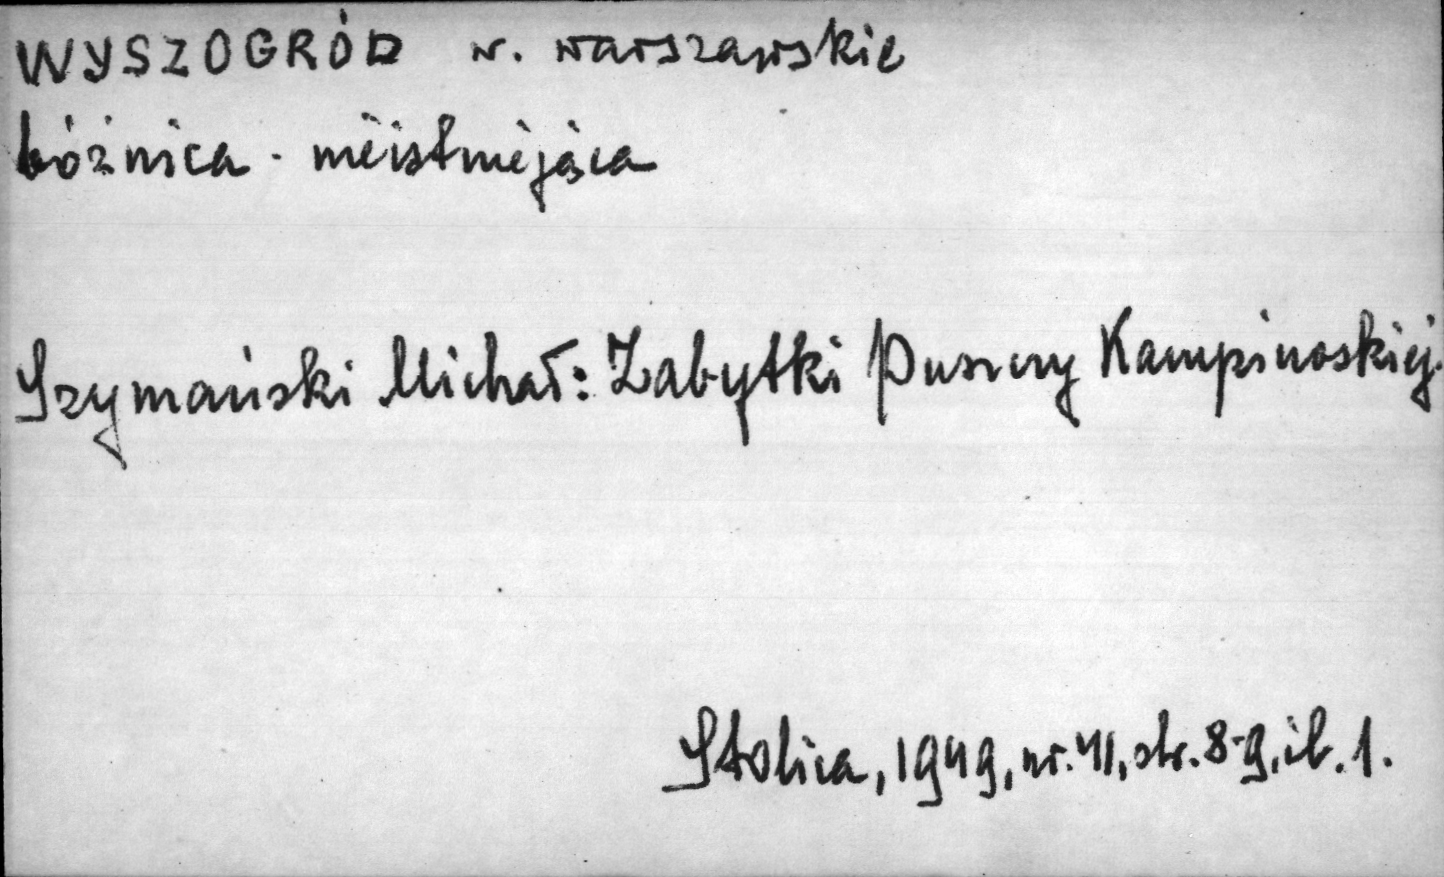 WYSZOGRÓD w. warszawskie
bóżnica - nieistniejąca
Szymański Michał: Zabytki Puszczy Kampinoskiej.
Stolica, 1949, nr. 41, str. 8-9, il. 1.